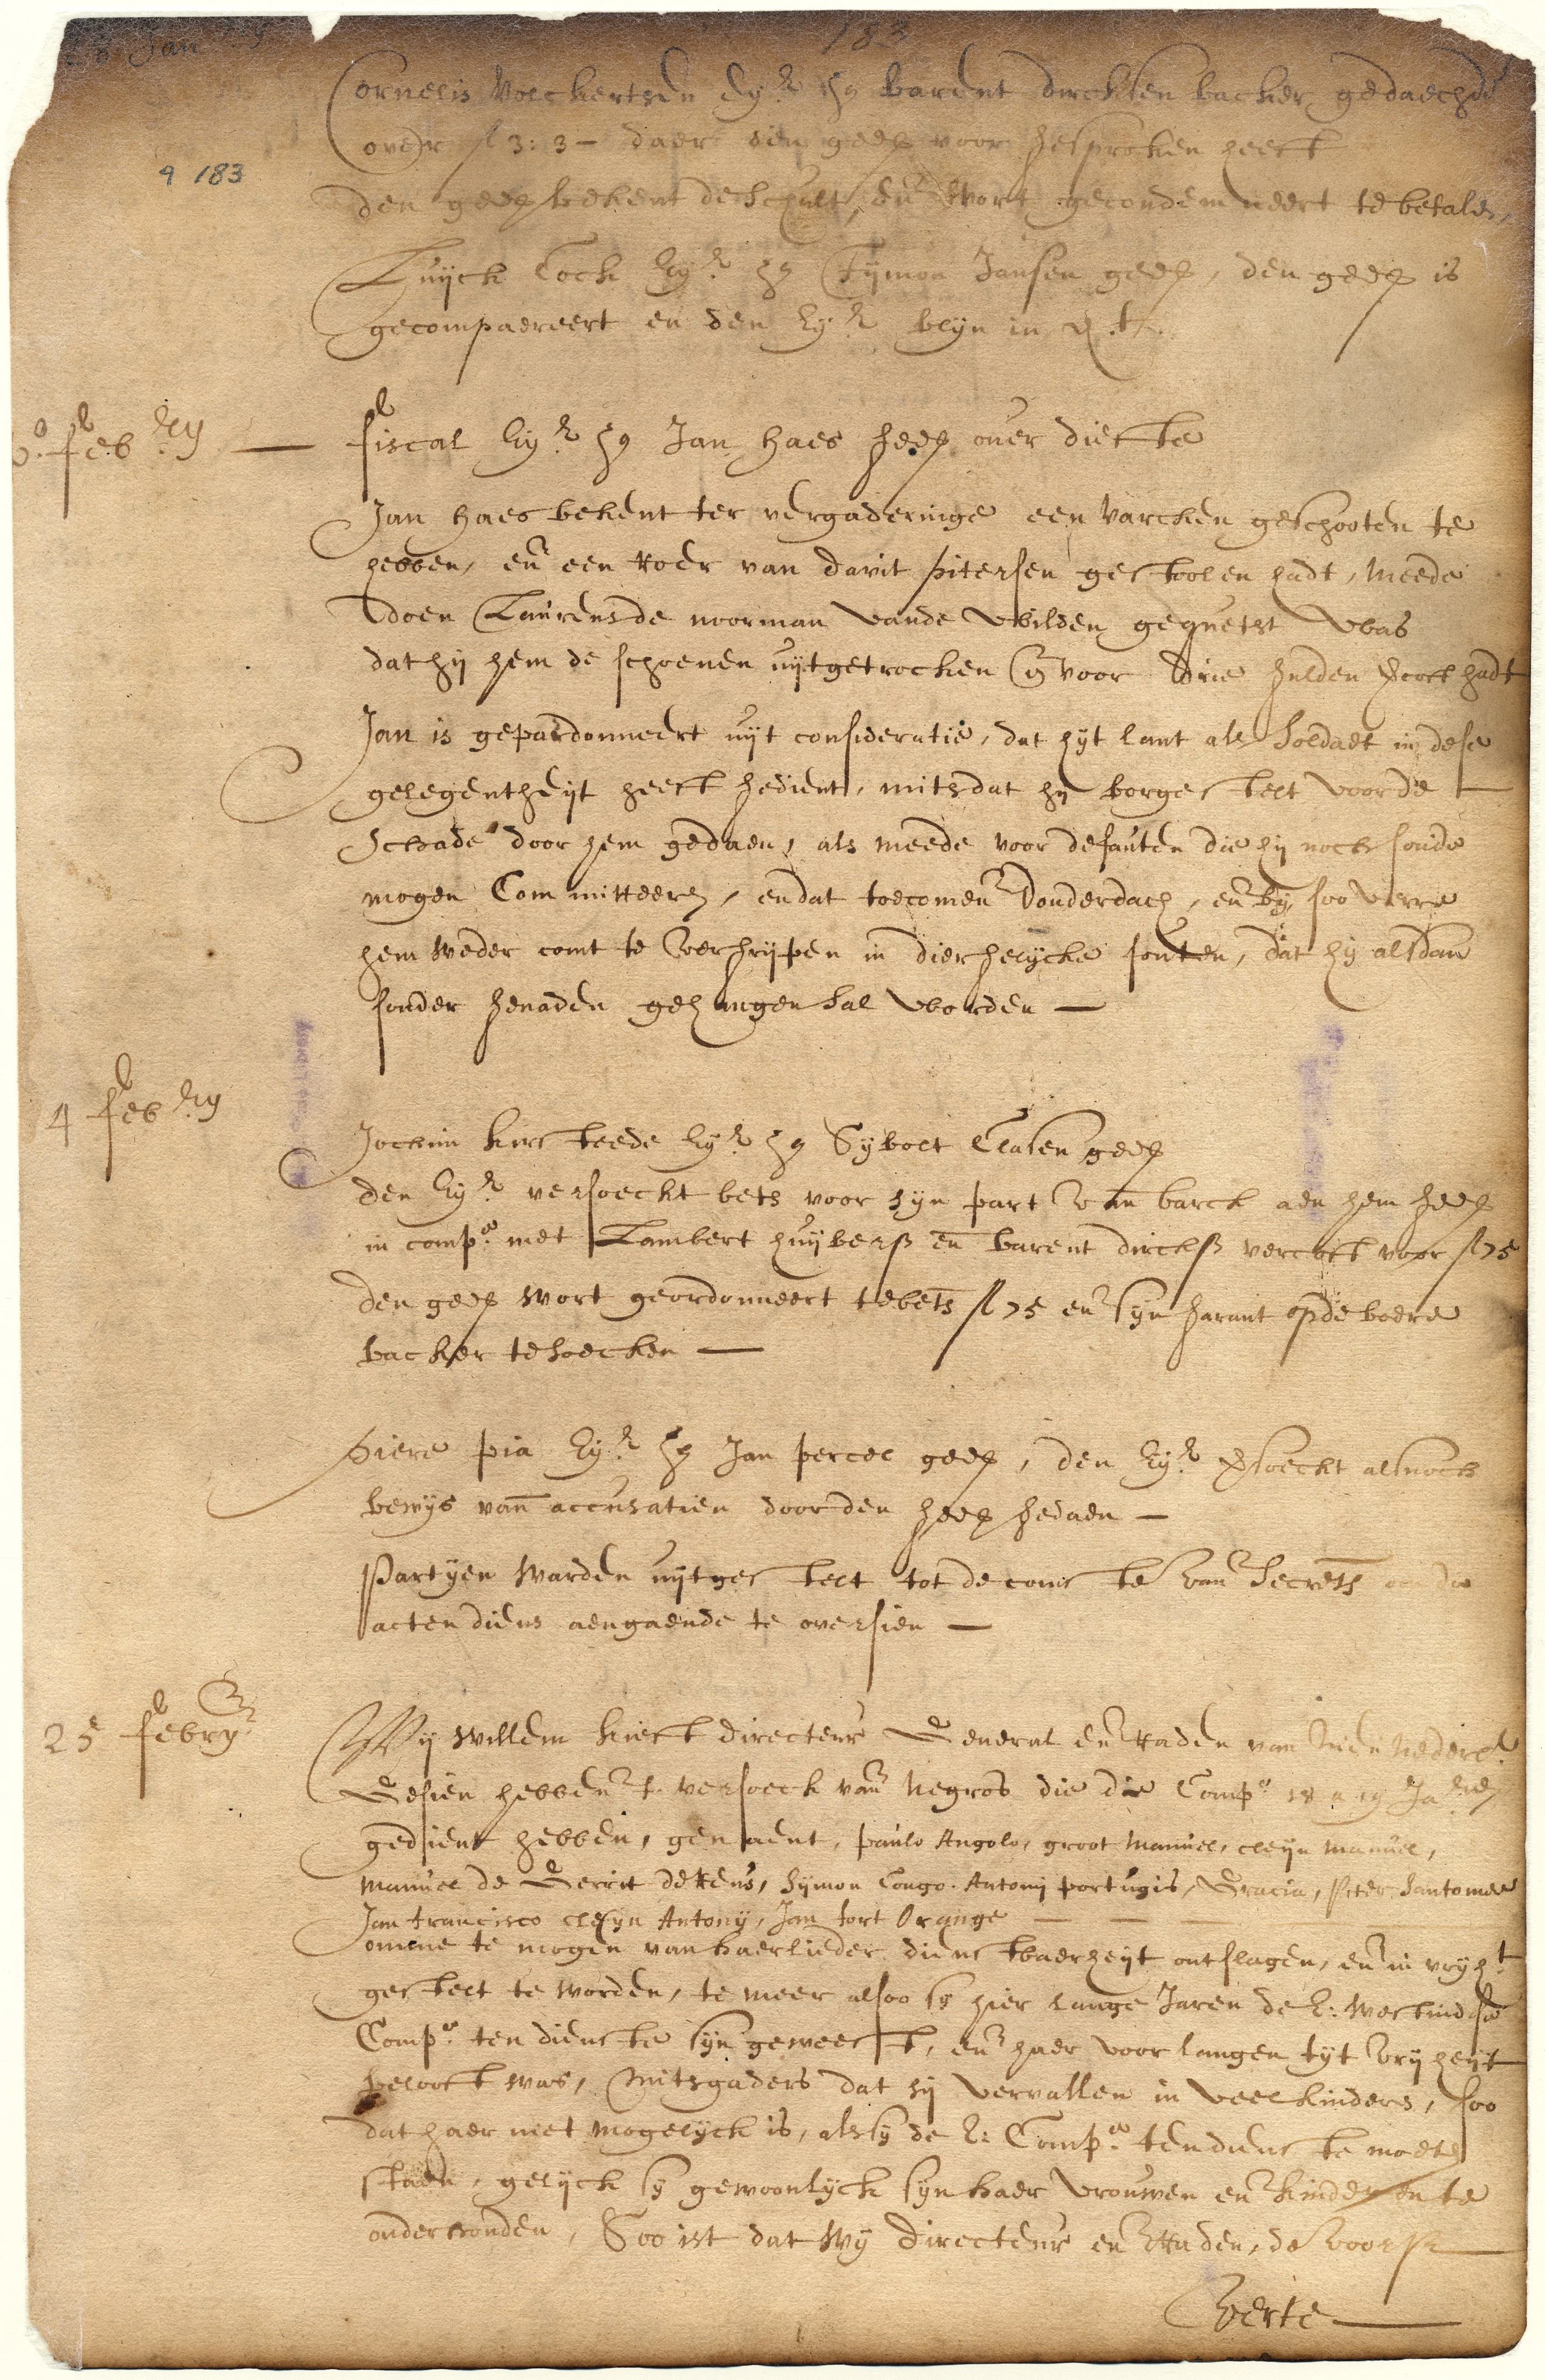 28 Jan
183
Cornelis Volckertsen Eyr. ca barent dircksen backer gedaechde
over fl 3: 3 - daer den gede voor gesproken heeft
4 183
den gede bekent de schult, en wort gecondemneert te betalen,
Luyck Cock Eyr. ca Tymon Jansen gede, den gede is
gecompaereert en den Eyr. blyn in
febry — fiscal Eyr. ca Jan haes gede over diefte
Jan haes bekent ter vergaderinge een varcken geschooten te
hebben, en een Roer van davit pitersen gestoolen hadt, meede
doen Laurens de noorman vande wilden gequetst was
dat hy hem de schoenen uytgetrocken en voor drie gulden vercoft hadt
Jan is gepardonneert uyt consideratie, dat hyt lant als Soldaet in dese
gelegentheyt heeft gedient, mits dat hy borge stelt voor de
schade door hem gedaen, als meede voor de fauten die hy noch soude
mogen Committeeren, en dat toecomen Donderdach, en by soo verre
hem weder comt te vergrypen in diergelycke fouten, dat hy alsdan
sonder genaden gehangen sal worden —
4 febry
Jochim kirsteede Eyr. ca Sybolt Clasen gede
den Eyr. versoeckt bets voor syn part van barck aen hem gede
in compe. met Lambert huybers en barent dircks vercoft voor fl 75
den gede wort geordonneert te bets fl 75 en syn garant op de boere
backer te soecken —
Piere pia Eyr. ca Jan percel gede, den Eyr. versoeckt alsnoch
bewys van accusatien door den gede gedaen —
Partyen warden uytgestelt tot de comste van Secrets de
acten diens aengaende te oversien —
25 febry
Wy Willem kieft directeur General en Raden van Nieu Nederlt
Gesien hebben t versoeck van Negros die die Compe. 18 a 19 Jaren
gedient hebben, genaent, paulo Angolo, groot Manuel, cleyn Manuel,
Manuel de Gerrit de Reus, Symon Congo. Antony portugis, Gracia, Piter Santomee
Jan francisco cleyn Antony, Jan fort Orange — — —
omme te mogen van haerlieder dienstbaerheyt ontslagen, en in vryht
gestelt te worden, te meer alsoo sy hier lange Jaren de E: Westindse
Compe. ten dienste syn geweest, en haer voor langen tyt vryheyt
belooft was, Mitsgaders dat sy vervallen in veel kinders, soo
dat haer niet mogelyck is, als sy de E: Compe. ten dienste moeten
staen, gelyck sy gewoonlyck syn haer vrouwen en kinderen te
onderhouden, Soo ist dat Wy Directeur en Raden, de voors
Verte —